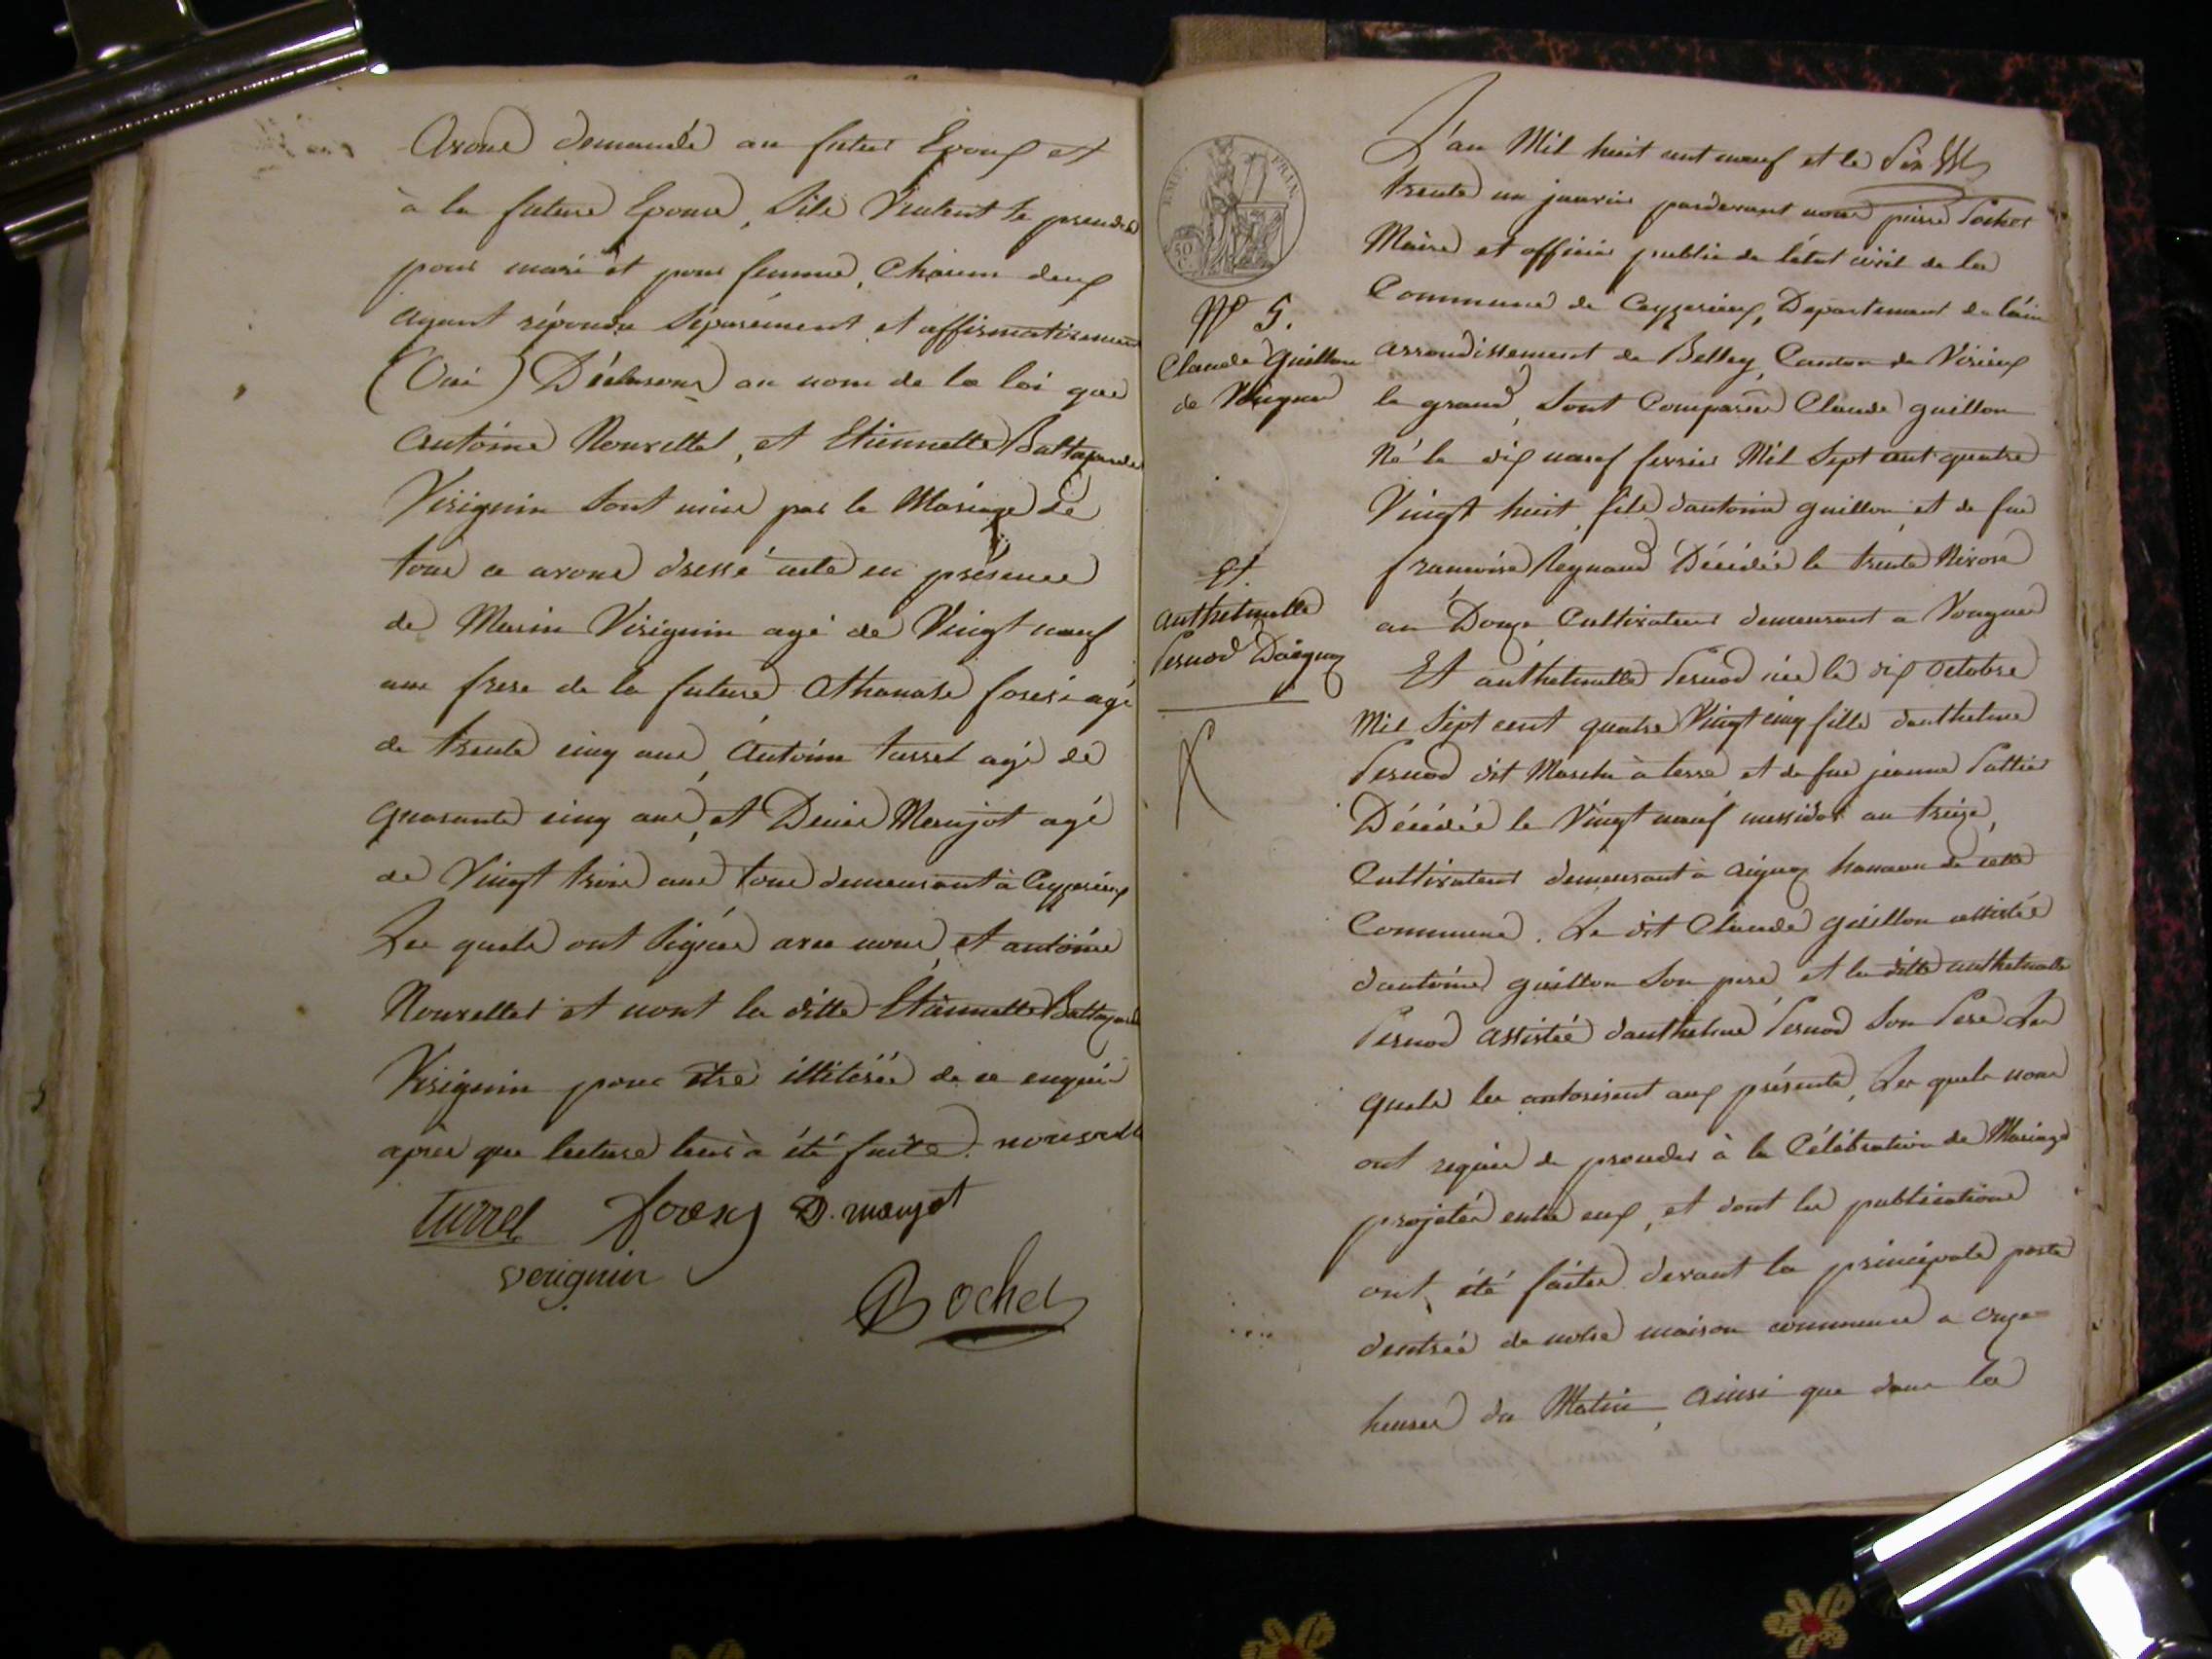 avons demandé au futur Epoux et
à la future Epouse, Sils Veulent se prendre
pour mari et pour femme, Chacun deux
ayant répondu Séparément et affirmativement
(Oui) Déclarons au nom de la loi que
antoine Nouvellet, et Etiennette
Virignin Sont unis par le Mariage de
tous ce avons dressé acte en présence
de Marin Virignin agé de Vingt neuf
ans frere de la future athanase agé
de trente cinq ans, Antoine turrel agé de
quarante cinq ans, et Denis Maujot agé
de Vingt trois ans tous demeurant à Ceyzerieux
Les quels ont Signés avec nous, et antoine
Nouvellet et nont la ditte Etiennette
Virignin pour etre illitérée de ce enquis
après que lecture leurs à été faite. nouvellet
turrel D. maujot
verignin
Bochet
EMP. FRAN.
50 C.
N° 5.
Claude Guillon
de Vongnes
Et.
anthelmette
Pernod Daignoz
L'an Mil huit cent neuf et le
trente un janvier pardevant nous pierre Bochet
Maire et officier public de létat civil de la
Commune de Ceyzerieux, Departement de láin
arrondissement de Belley, Canton de Virieux
le grand, Sont Comparus Claude guillon
Né le dix neuf fevrier Mil Sept cent quatre
Vingt huit, fils dantoine guillon, et de fue
francoise Reynaud Décédée le trente Nivose
an Douze, Cultivateurs demeurant a Vongnes
Et anthelmette Pernod née le dix octobre
Mil Sept cent quatre Vingt cinq fille danthelme
Pernod dit Marche à terre et de fue jeanne
Décédée le Vingt neuf messidor an treize,
Cultivateurs demeurant à aignoz hameau de cette
Commune. Le dit Claude guillon assistée
dantoine guillon Son pere et la ditte anthelmette
Pernod assistée danthelme Pernod Son Pere Les
quels les autorisent aux présente, Les quels nous
ont requis de proceder à la Célébration de Mariage
projetée entre eux, et dont les publications
ont été faites devant la principale porte
dentrée de notre maison commune a onze
heures du Matin, ainsi que dans la